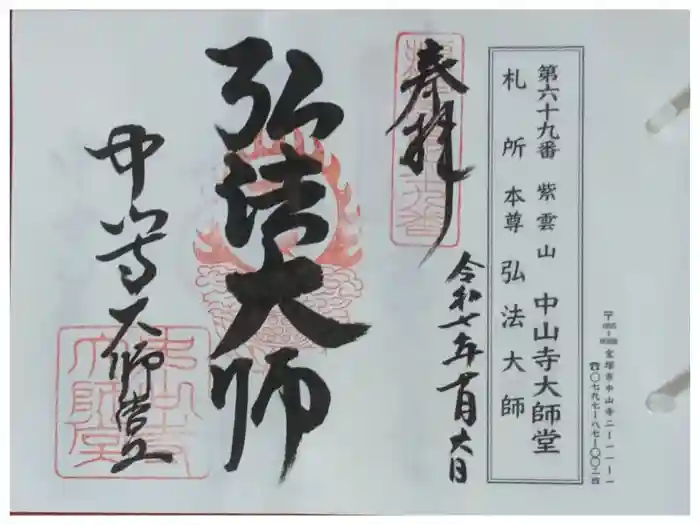 〒
宝塚市中山寺二ー一一ー一
☎〇七九七ー八七ー〇〇二四
第六十九番 紫雲山 中山寺大師堂
札所本尊 弘法大師
奉拝
令和七年 月 日
弘法大師
中山寺大師堂
中山寺
大師堂